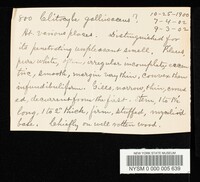 800 Clitocybe gallinacea? 10-25-1900
7-4-02
9-3-02
At various places. Distinguished for
its penetrating unpleasant smell. Pileus
pure white, often irregular incomplete, eccen-
tric, smooth, margin very thin, convex then
infundibuliform. Gills, narrow, thin, crowd-
ed, decurrent from the first. Stem, 1 to 1½
long, thick, firm, stuffed, mycelioid
base. Chiefly on well rotten wood.
NEW YORK STATE MUSEUM
NYSM 0 000 005 639